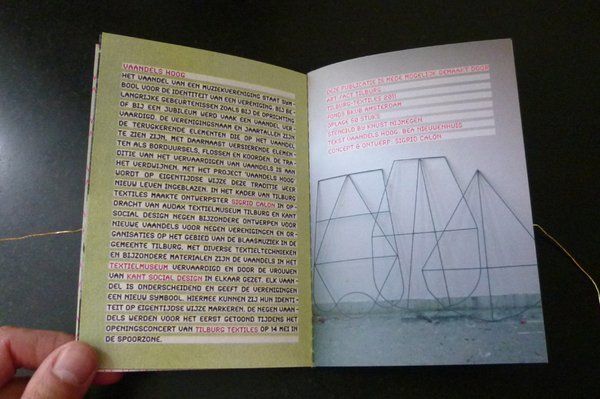 VAANDELS HOOG
HET VAANDEL VAN EEN MUZIEKVERENIGING STAAT SYM-
BOOL VOOR DE IDENTITEIT VAN EEN VERENIGING. BIJ BE-
LANGRIJKE GEBEURTENISSEN ZOALS BIJ DE OPRICHTING
OF BIJ EEN JUBILEUM WERD VAAK EEN VAANDEL VER-
VAARDIGD. DE VERENIGINGSNAAM EN JAARTALLEN ZIJN
DE TERUGKERENDE ELEMENTEN DIE OP HET VAANDEL
TE ZIEN ZIJN, MET DAARNAAST VERSIERENDE ELEMEN-
TEN ALS BORDUURSELS, FLOSSEN EN KOORDEN. DE TRA-
DITIE VAN HET VERVAARDIGEN VAN VAANDELS IS AAN
HET VERDWIJNEN. MET HET PROJECT 'VAANDELS HOOG'
WORDT OP EIGENTIJDSE WIJZE DEZE TRADITIE WEER
NIEUW LEVEN INGEBLAZEN. IN HET KADER VAN TILBURG
TEXTILES MAAKTE ONTWERPSTER SIGRID CALON IN OP-
DRACHT VAN AUDAX TEXTIELMUSEUM TILBURG EN KANT
SOCIAL DESIGN NEGEN BIJZONDERE ONTWERPEN VOOR
NIEUWE VAANDELS VOOR NEGEN VERENIGINGEN EN OR-
GANISATIES OP HET GEBIED VAN DE BLAASMUZIEK IN DE
GEMEENTE TILBURG. MET DIVERSE TEXTIELTECHNIEKEN
EN BIJZONDERE MATERIALEN ZIJN DE VAANDELS IN HET
TEXTIELMUSEUM VERVAARDIGD EN DOOR DE VROUWEN
VAN KANT SOCIAL DESIGN IN ELKAAR GEZET. ELK VAAN-
DEL IS ONDERSCHEIDEND EN GEEFT DE VERENIGINGEN
EEN NIEUW SYMBOOL. HIERMEE KUNNEN ZIJ HUN IDENTI-
TEIT OP EIGENTIJDSE WIJZE MARKEREN. DE NEGEN VAAN-
DELS WERDEN VOOR HET EERST GETOOND TIJDENS HET
OPENINGSCONCERT VAN TILBURG TEXTILES OP 14 MEI IN
DE SPOORZONE.
DEZE PUBLICATIE IS MEDE MOGELIJK GEMAAKT DOOR
ART FACT TILBURG
TILBURG TEXTILES 2011
FONDS BKVB AMSTERDAM
OPLAGE 50 STUKS
STENCILD BY KNUST NIJMEGEN
TEKST VAANDELS HOOG: BEA NIEUWENHUIS
CONCEPT & ONTWERP: SIGRID CALON